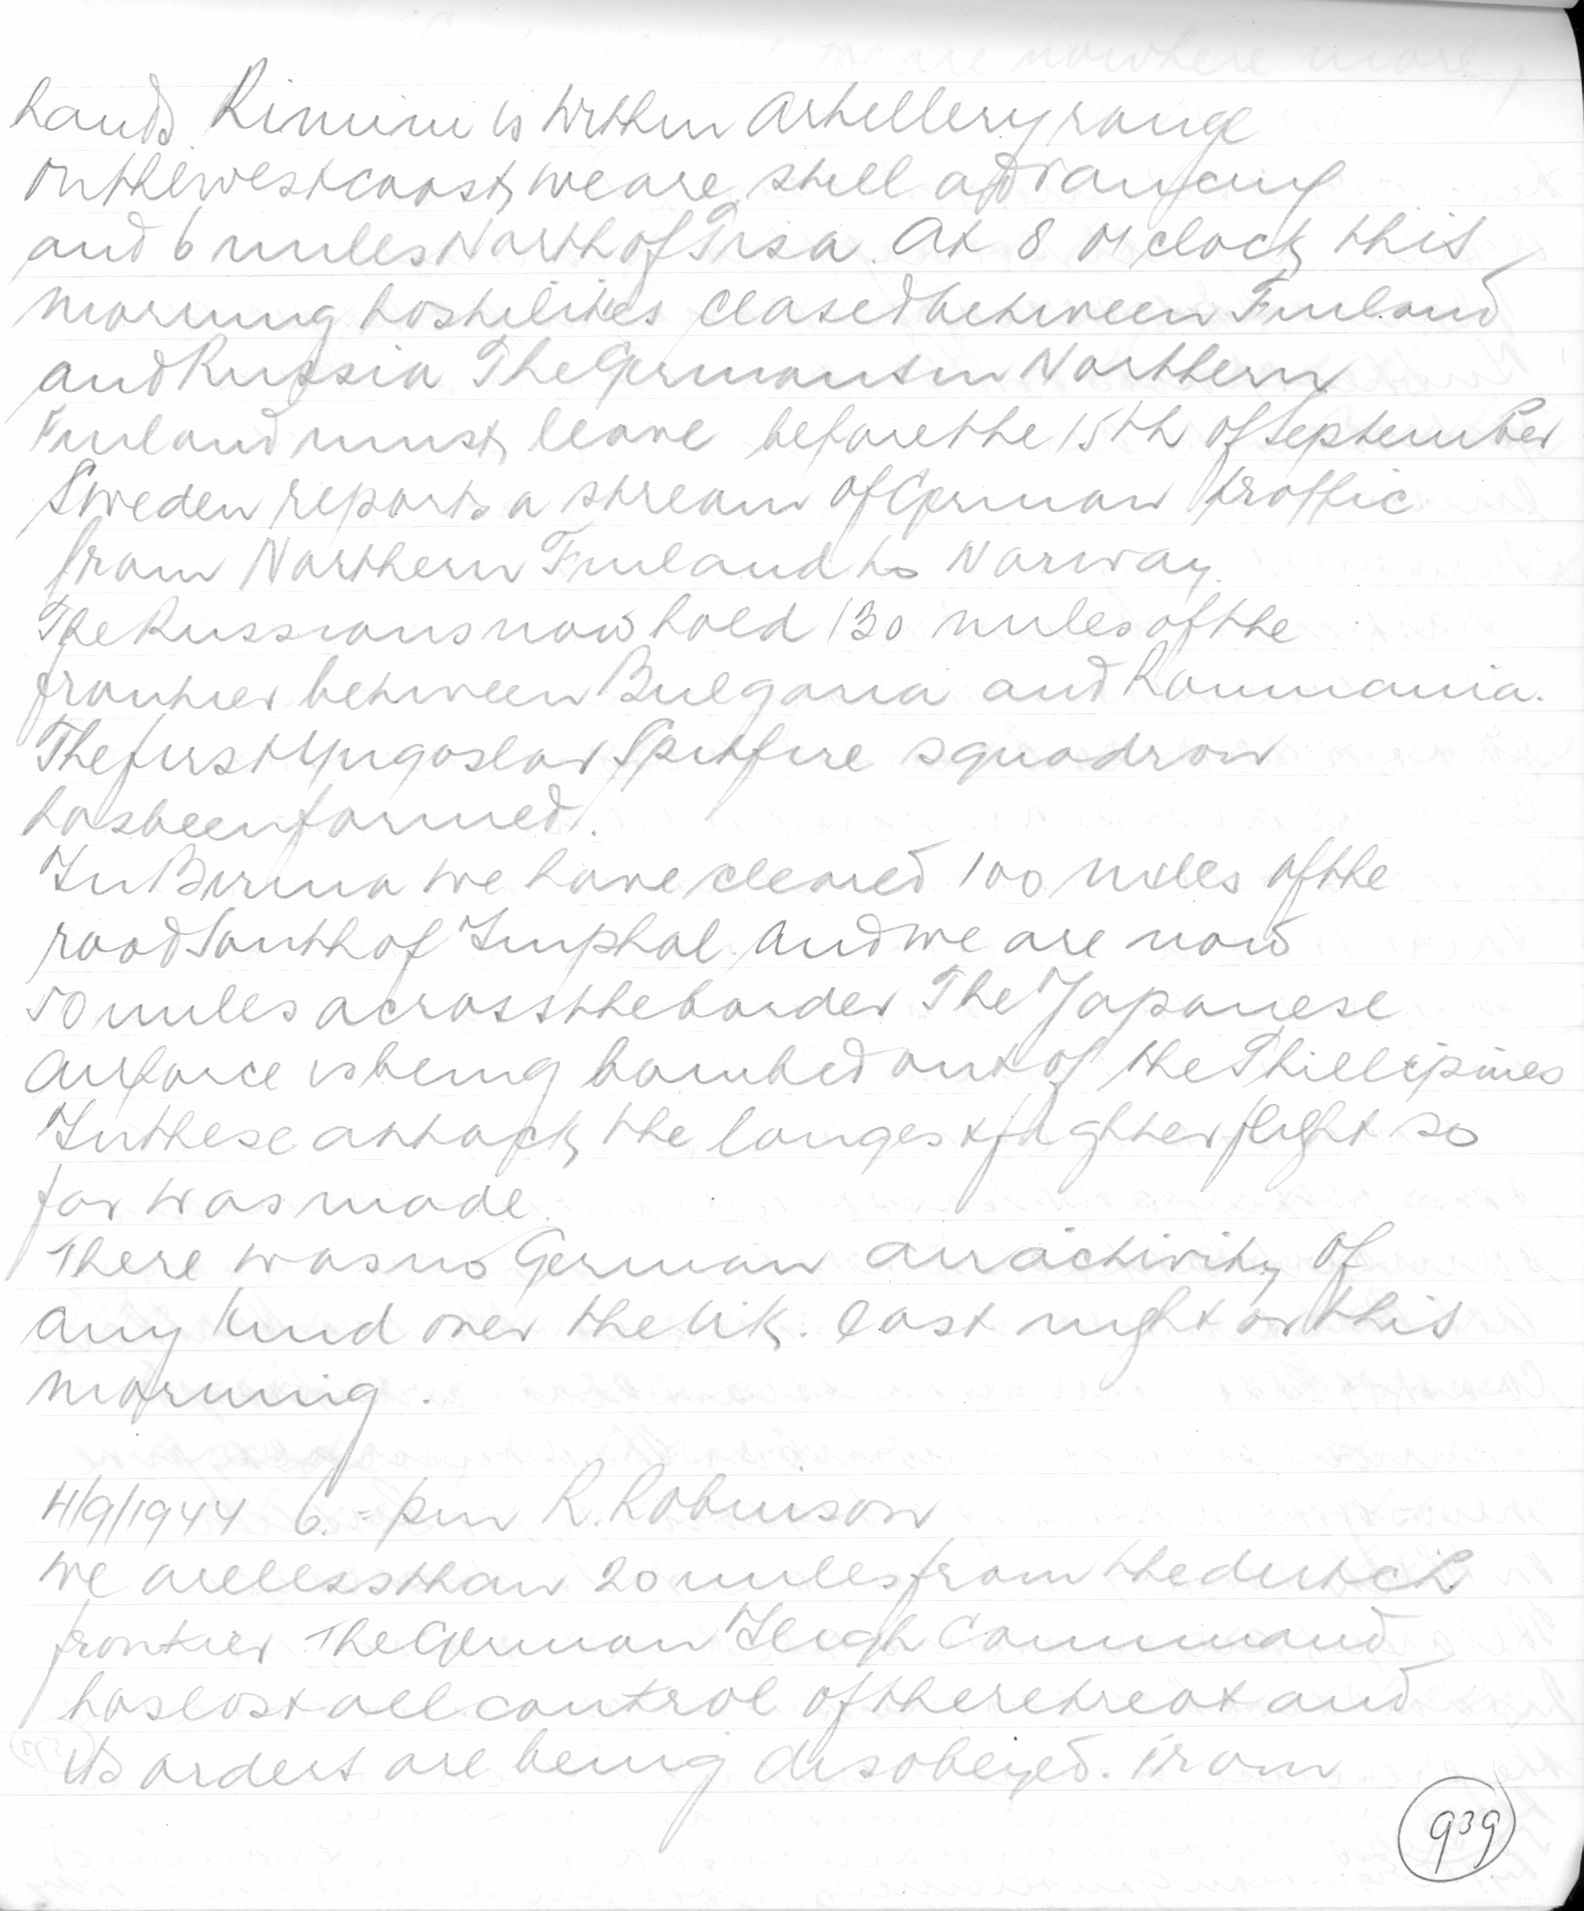 hands. Rimini is within arhellery range
on the west coast, we are still advancing
and 6 miles North of Pisa. At 8 o'clock this
morning hostilities closed between Finland
and Russia The Germans in Northern
Finland must leave before the 15th of September
Sweden reports a stream of German traffic
from Northern Finland to Norway.
The Russians now hold 130 miles of the
frontier between Bulgaria and Roumania.
The first Yugoslav Spitfire squadron
has been formed.
In Birma we have cleared 100 miles of the
road South of Imphal. and we are now
50 miles across the border The Japanese
Airforce is being bombed out of the Phillipines
In these attack, the longest fighter flight so
far was made.
There was no German air activity of
any kind over the U.K. last night or this
morning.
4/9/1944 6.= pm R. Robinson
We are less than 20 miles from the dutch
frontier The German High Command
has lost all control of the retreat and
its orders are being disobeyed. From
939